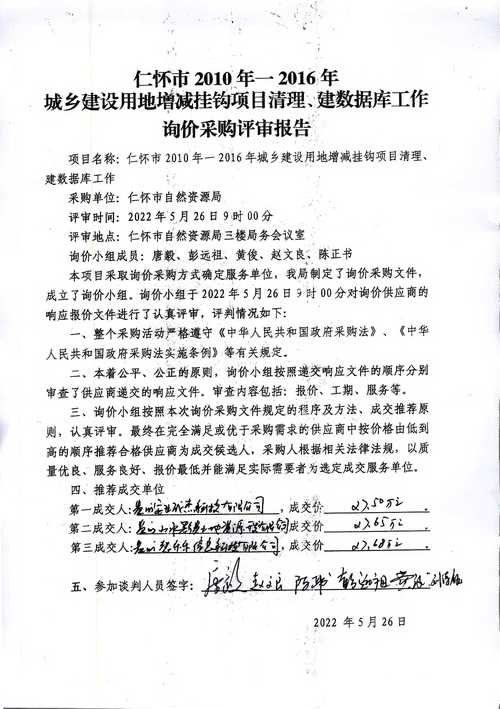 仁怀市 2010 年一 2016 年
城乡建设用地增减挂钩项目清理、建数据库工作
询价采购评审报告
项目名称：仁怀市 2010 年一 2016 年城乡建设用地增减挂钩项目清理、
建数据库工作
采购单位：仁怀市自然资源局
评审时间：2022 年 5 月 26 日 9 时 00 分
评审地点：仁怀市自然资源局三楼局务会议室
询价小组成员：唐毅、彭远祖、黄俊、赵文良、陈正书
本项目采取询价采购方式确定服务单位，我局制定了询价采购文件，
成立了询价小组。询价小组于 2022 年 5 月 26 日 9 时 00 分对询价供应商的
响应报价文件进行了认真评审，评判情况如下：
一、整个采购活动严格遵守《中华人民共和国政府采购法》、《中华
人民共和国政府采购法实施条例》等有关规定。
二、本着公平、公正的原则，询价小组按照递交响应文件的顺序分别
审查了供应商递交的响应文件。审查内容包括：报价、工期、服务等。
三、询价小组按照本次询价采购文件规定的程序及方法、成交推荐原
则，认真评审。最终在完全满足或优于采购需求的供应商中按价格由低到
高的顺序推荐合格供应商为成交候选人，采购人根据相关法律法规，以质
量优良、服务良好、报价最低并能满足实际需要者为选定成交服务单位。
四、推荐成交单位
第一成交人：，成交价 27.50万元 .
第二成交人：成交价 27.65万元 .
第三成交人：，成交价 27.68万元 .
五、参加谈判人员签字：唐毅 赵文良
2022 年 5 月 26 日